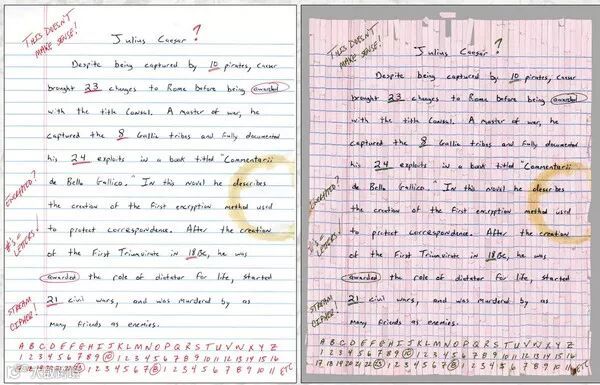 THIS DOESN'T
MAKE SENSE!
Julius Caesar ?
Despite being captured by 10 pirates, Caesar
brought 23 changes to Rome before being awarded
with the title Consul. A master of war, he
captured the 8 Gallic tribes and fully documented
his 24 exploits in a book titled "Commentarii
de Bello Gallico." In this novel he describes
the creation of the first encryption method used
to protect correspondence. After the creation
of the First Triumvirate in 18BC, he was
awarded the role of dictator for life, started
21 civil wars, and was murdered by as
many friends as enemies.
ENCRYPTED?
#'s =
LETTERS!
STREAM
CIPHER!
A B C D E F G H I J K L M N O P Q R S T U V W X Y Z
1 2 3 4 5 6 7 8 9 10 1 2 3 4 5 6 7 8 9 10 11 12 13 14 15 16
ETC
THIS DOESN'T
MAKE SENSE!
Julius Caesar ?
Despite being captured by 10 pirates, Caesar
brought 23 changes to Rome before being awarded
with the title Consul. A master of war, he
captured the 8 Gallic tribes and fully documented
his 24 exploits in a book titled "Commentarii
de Bello Gallico." In this novel he describes
the creation of the first encryption method used
to protect correspondence. After the creation
of the First Triumvirate in 18BC, he was
awarded the role of dictator for life, started
21 civil wars, and was murdered by as
many friends as enemies.
ENCRYPTED?
#'s =
LETTERS!
STREAM
CIPHER!
A B C D E F G H I J K L M N O P Q R S T U V W X Y Z
1 2 3 4 5 6 7 8 9 10 1 2 3 4 5 6 7 8 9 10 11 12 13 14 15 16
ETC